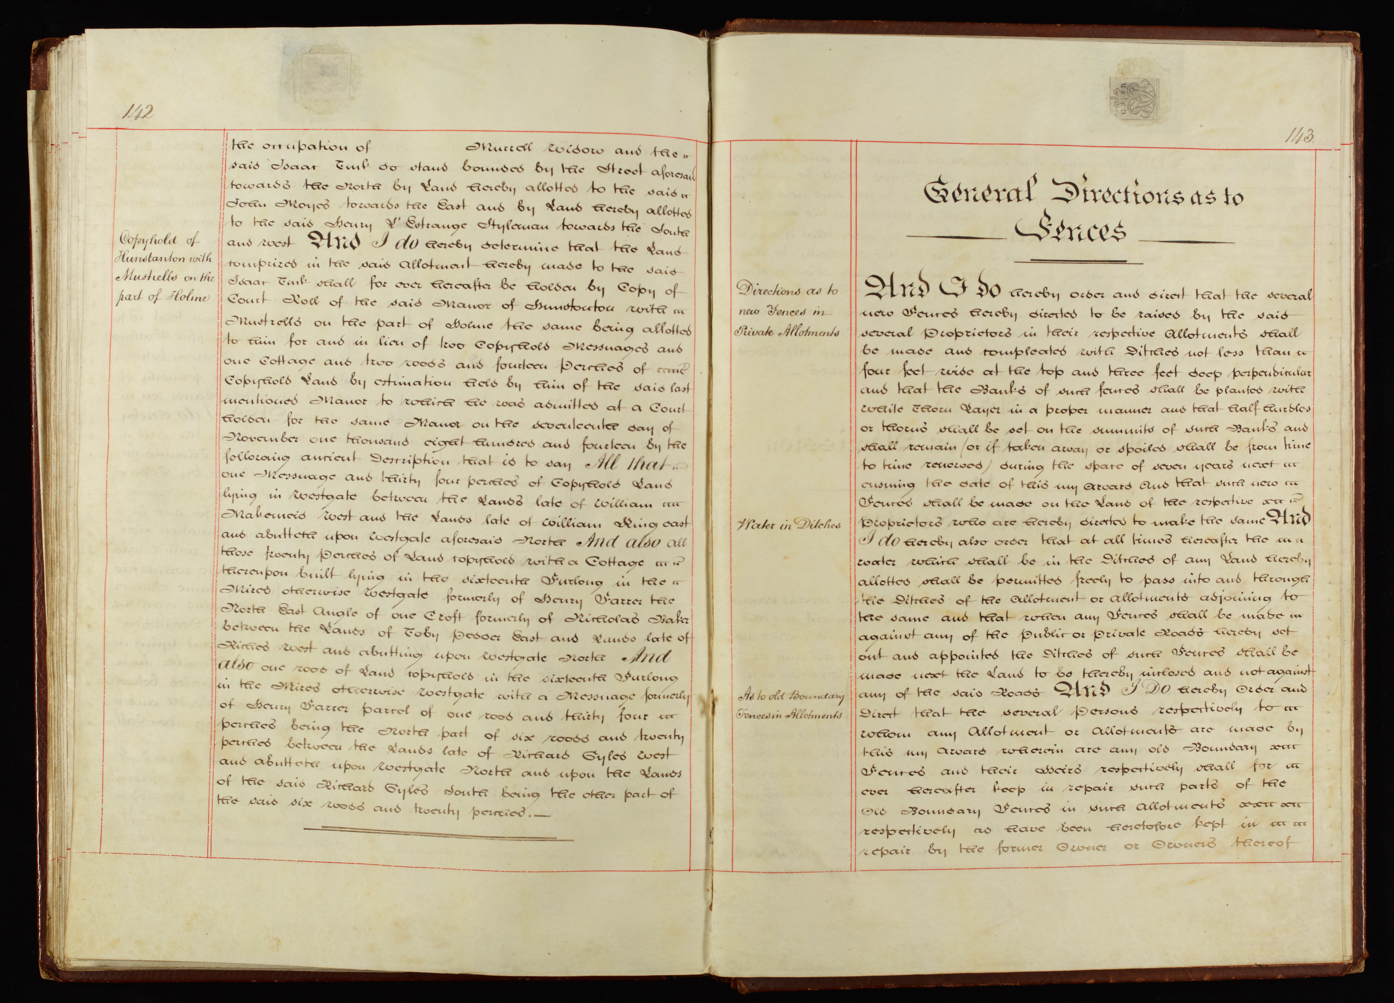 142
the occupation of Murrell widow and the
said Isaac Tink do stand bounded by the Street aforesaid
towards the North by Land hereby allotted to the said
John Moyes towards the East and by Land hereby allotted
to the said Henry L'Estrange Styleman towards the South
and west And I do hereby determine that the Land
Copyhold of
Hunstanton with
Mustrells on the
part of Holme
comprized in the said Allotment hereby made to the said
Isaac Tink shall for ever hereafter be holden by Copy of
Court Roll of the said Manor of Hunstanton with
Mustrells on the part of Holme the same being allotted
to him for and in lieu of two Copyhold Messuages and
one Cottage and two roods and fourteen Perches of
Copyhold Land by estimation held by him of the said last
mentioned Manor to which he was admitted at a Court
holden for the same Manor on the seventeenth day of
November one thousand eight hundred and fourteen by the
following ancient Description that is to say All that
one Messuage and thirty four perches of Copyhold Land
lying in westgate between the Lands late of William
Makemeis West and the Lands late of William King east
and abutteth upon westgate aforesaid North And also all
those twenty Perches of Land copyhold with a Cottage
thereupon built lying in the sixteenth Furlong in the
Mires otherwise Westgate formerly of Henry Farrer the
North East Angle of one Croft formerly of Nicholas Baker
between the Lands of Toby Pedder East and Lands late of
Riches west and abutting upon westgate North And
also one rood of Land copyhold in the sixteenth Furlong
in the Mires otherwise westgate with a Messuage formerly
of Henry Farrer parcel of one rood and thirty four
perches being the North part of six roods and twenty
perches between the Lands late of Richard Syles West
and abutteth upon Westgate North and upon the Lands
of the said Richard Syles South being the other part of
the said six roods and twenty perches.
143
General Directions as to
Fences
Directions as to
new Fences in
Private Allotments
And I Do hereby order and direct that the several
new Fences hereby directed to be raised by the said
several Proprietors in their respective Allotments shall
be made and compleated with Ditches not less than
four feet wide at the top and three feet deep perpendicular
and that the Banks of such fences shall be planted with
White Thorn Layer in a proper manner and that half hurdles
or thorns shall be set on the summits of such Banks and
shall remain (or if taken away or spoiled shall be from time
to time renewed) during the space of seven years next
ensuing the date of this my Award And that such new
Fences shall be made on the Land of the respective
Water in Ditches
Proprietors who are hereby directed to make the same And
I do hereby also order that at all times hereafter the
water which shall be in the Ditches of any Land hereby
allotted shall be permitted freely to pass into and through
the Ditches of the Allotment or Allotments adjoining to
the same and that when any Fences shall be made
against any of the Public or Private Roads hereby set
out and appointed the Ditches of such Fences shall be
made next the Land to be thereby inclosed and not against
As to old Boundary
Fences in Allotments
any of the said Roads And I Do hereby Order and
Direct that the several Persons respectively to
whom any Allotment or Allotments are made by
this my Award wherein are any old Boundary
Fences and their Heirs respectively shall for
ever hereafter keep in repair such parts of the
Old Boundary Fences in such Allotments
respectively as have been heretofore kept in
repair by the former Owner or Owners thereof